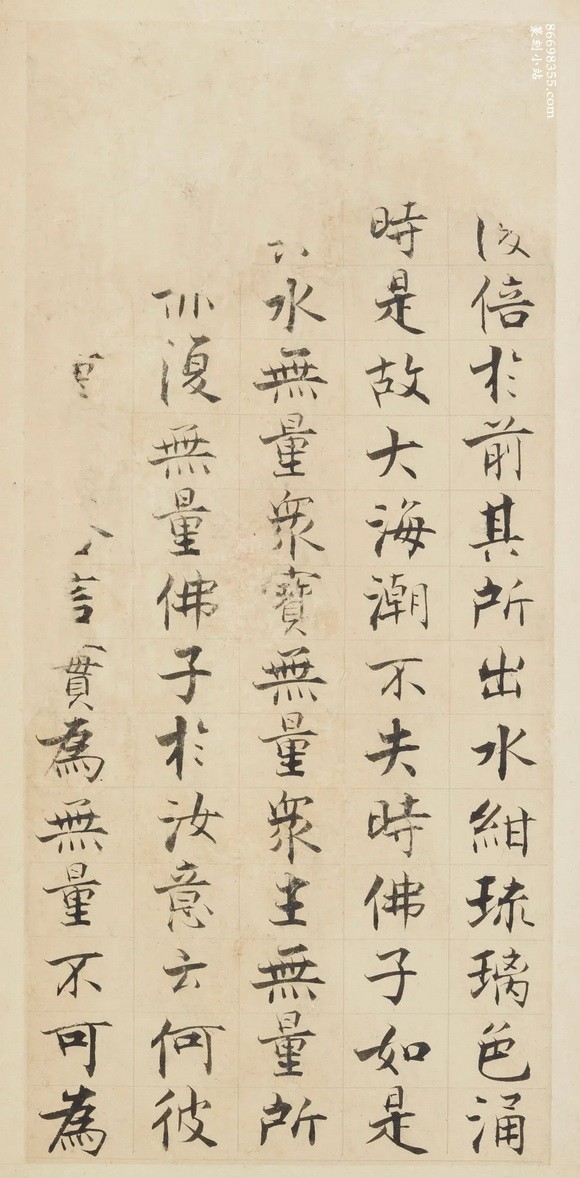 倍於前其所出水紺琉璃色涌
時是故大海潮不失時佛子如是
水無量衆寶無量衆生無量所
復無量佛子於汝意云何彼
言實為無量不可為
86698355.com
篆刻小站